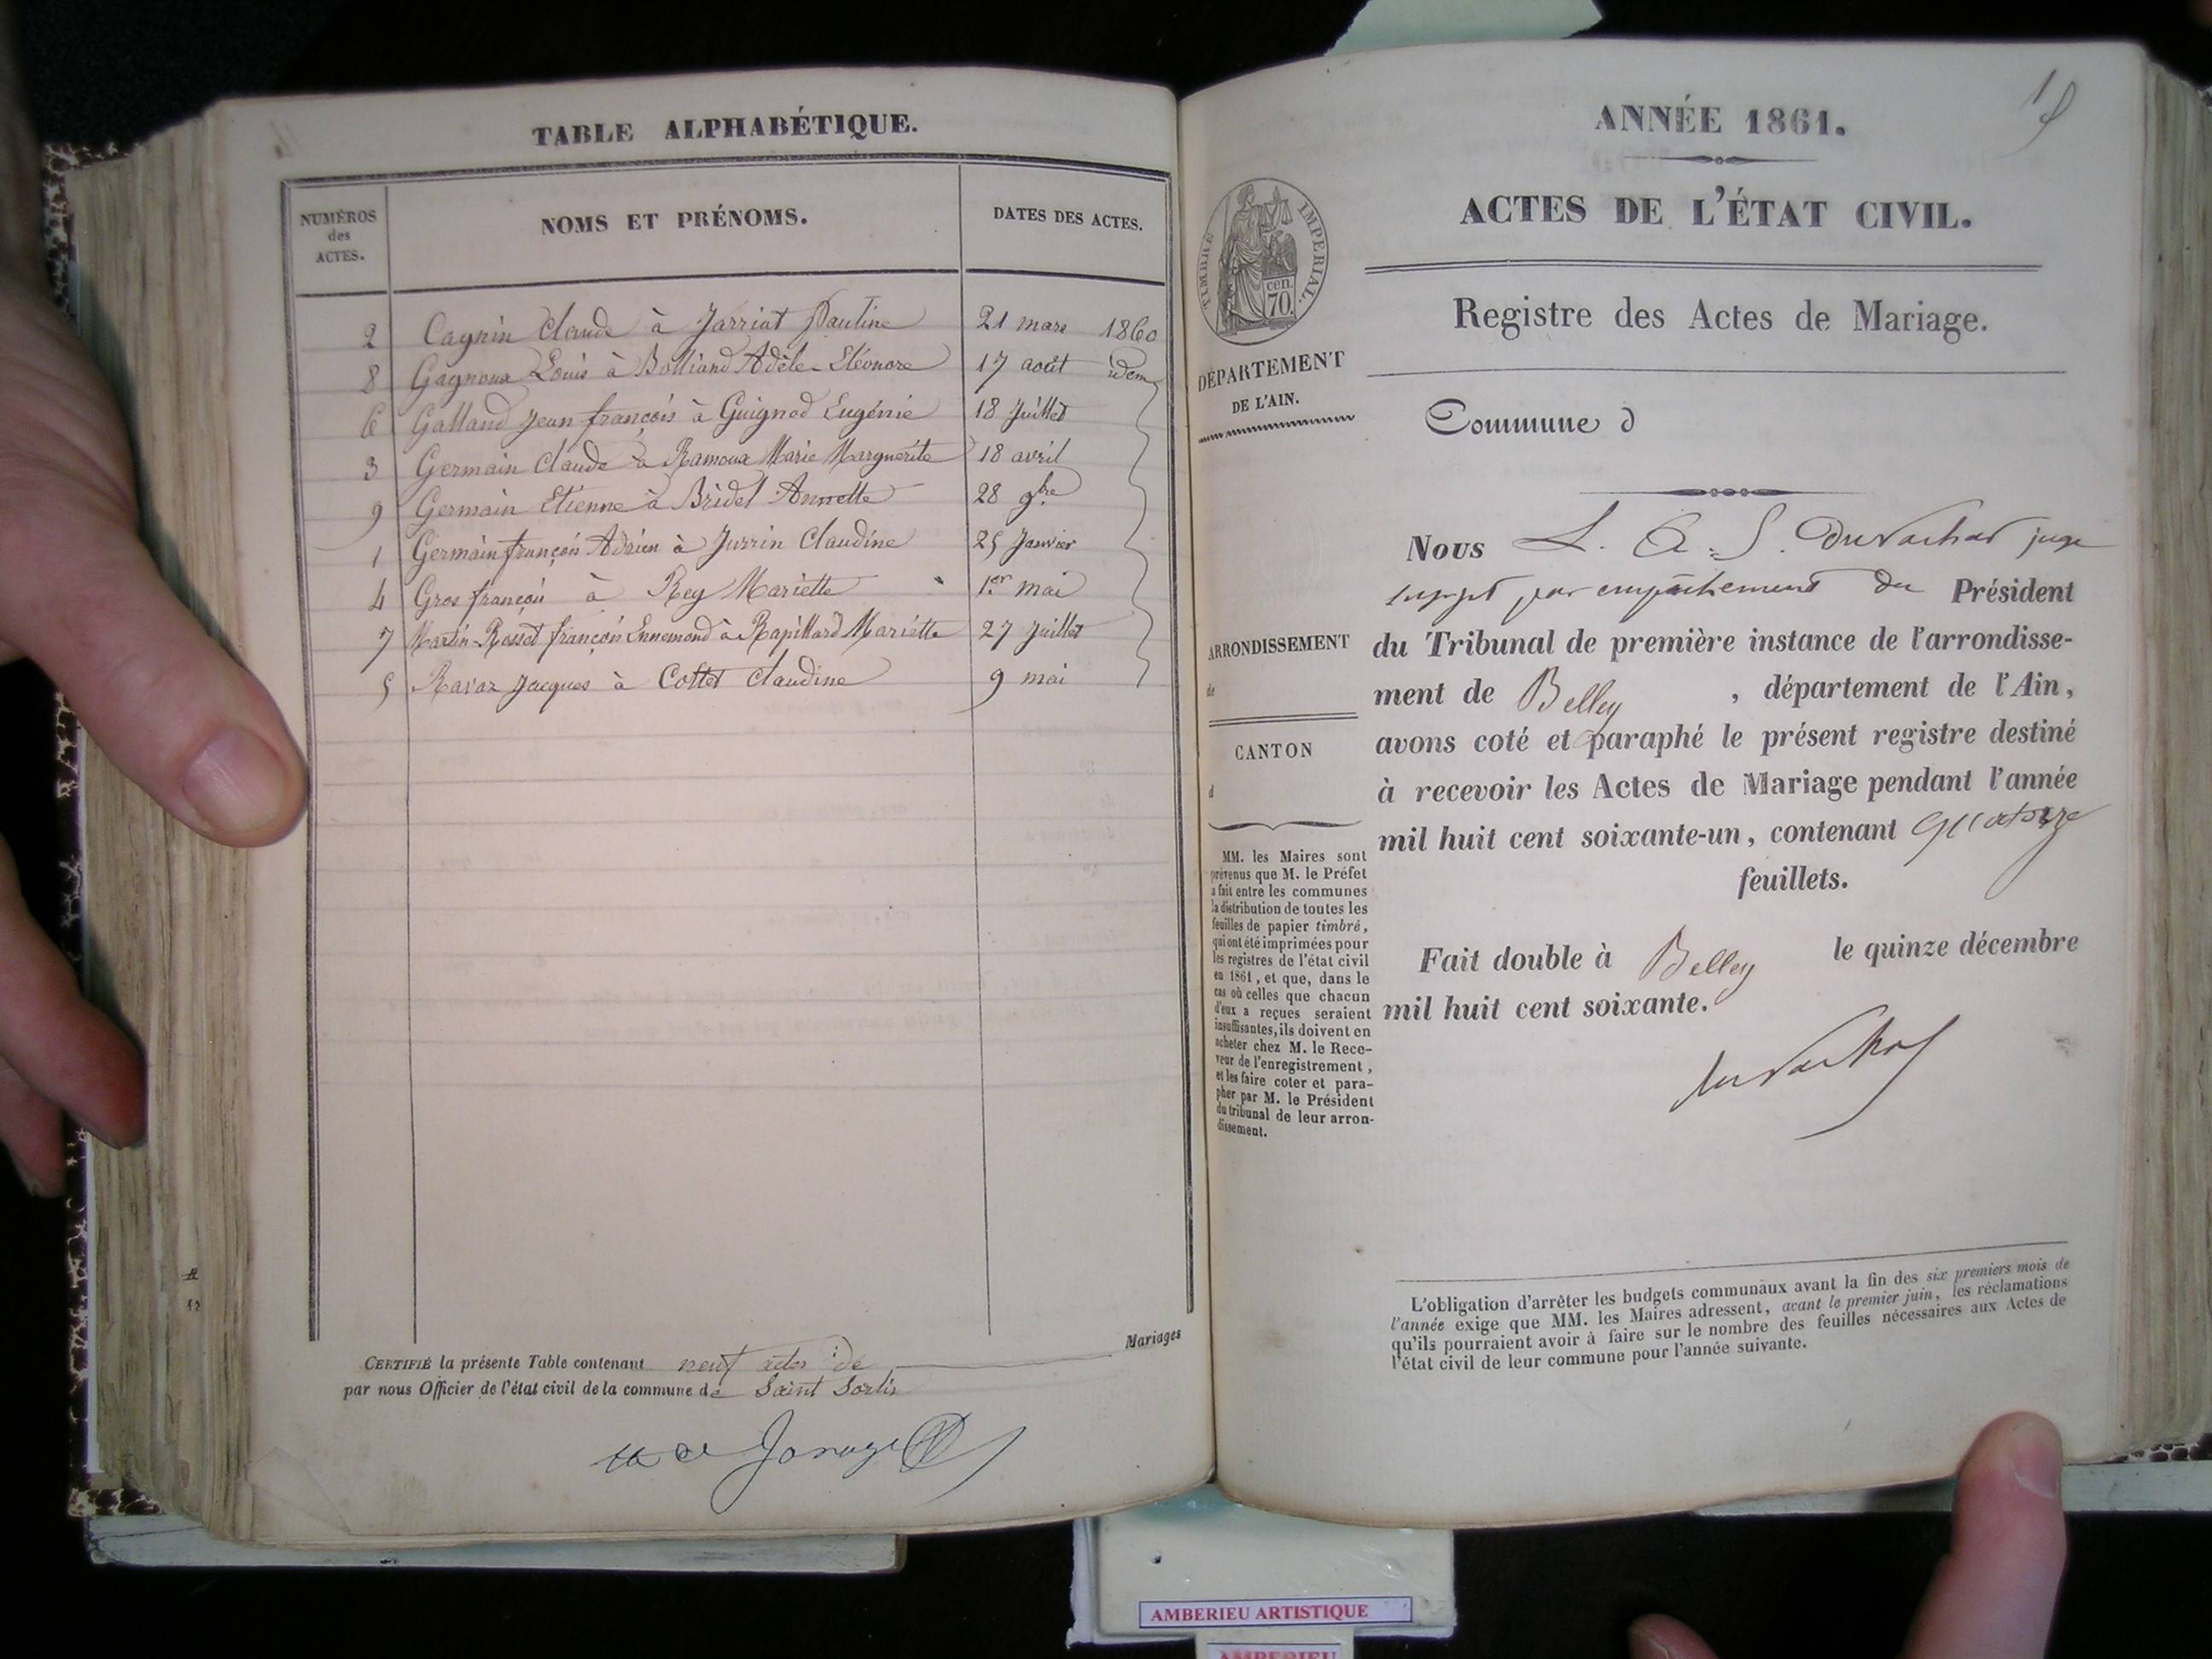 TABLE ALPHABÉTIQUE.
NUMÉROS des ACTES.
NOMS ET PRÉNOMS.
DATES DES ACTES.
2 Cagnin Claude à Jarriat Pauline 21 mars 1860
8 Gagnoux Louis à Bolliand Adèle-Eléonore 17 août idem
6 Galland Jean françois à Guignod Eugénie 18 Juillet
3 Germain Claude à Ramoux Marie Marguerite 18 avril
9 Germain Etienne à Bridel Annette 28 9bre
1 Germain françois Adrien à Jurrin Claudine 25 Janvier
4 Gros françois à Rey Mariette 1er mai
7 Martin-Rosset françois Ennemond à Rapillard Mariette 27 Juillet
5 Ravaz Jacques à Cottet Claudine 9 mai
CERTIFIÉ la présente Table contenant neuf actes de Mariages
par nous Officier de l'état civil de la commune de Saint Sorlin
ANNÉE 1861.
ACTES DE L'ÉTAT CIVIL.
Registre des Actes de Mariage.
TIMBRE IMPERIAL.
70 cen.
DÉPARTEMENT
DE L'AIN.
ARRONDISSEMENT
de
CANTON
d
MM. les Maires sont
prévenus que M. le Préfet
a fait entre les communes
la distribution de toutes les
feuilles de papier timbré,
qui ont été imprimées pour
les registres de l'état civil
en 1861, et que, dans le
cas où celles que chacun
d'eux a reçues seraient
insuffisantes, ils doivent en
acheter chez M. le Rece-
veur de l'enregistrement,
et les faire coter et para-
pher par M. le Président
du tribunal de leur arron-
dissement.
Commune d
Nous L. juge
par empêchement du Président
du Tribunal de première instance de l'arrondisse-
ment de Belley, département de l'Ain,
avons coté et paraphé le présent registre destiné
à recevoir les Actes de Mariage pendant l'année
mil huit cent soixante-un, contenant quatorze
feuillets.
Fait double à Belley le quinze décembre
mil huit cent soixante.
L'obligation d'arrêter les budgets communaux avant la fin des six premiers mois de
l'année exige que MM. les Maires adressent, avant le premier juin, les réclamations
qu'ils pourraient avoir à faire sur le nombre des feuilles nécessaires aux Actes de
l'état civil de leur commune pour l'année suivante.
AMBERIEU ARTISTIQUE
AMBERIEU